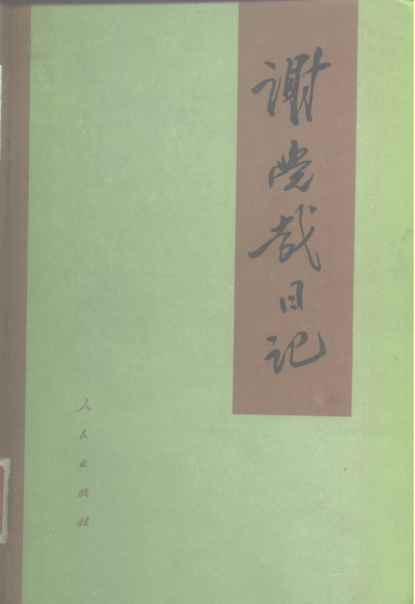 谢觉哉日记
人民出版社